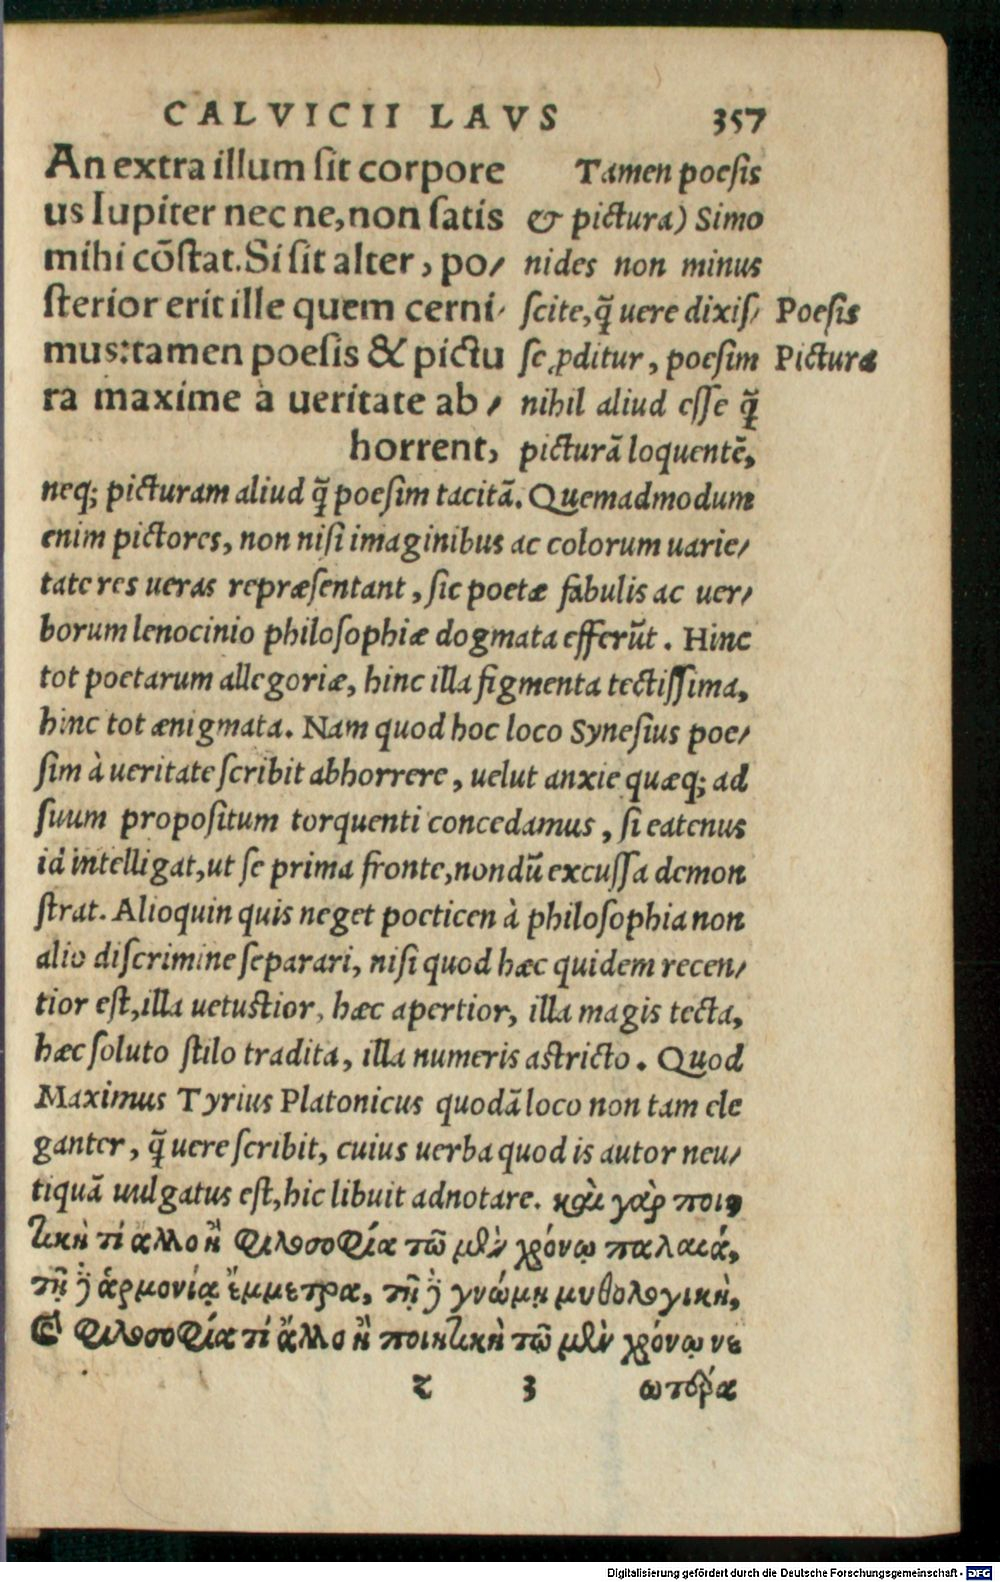 CALVICII LAVS 357
An extra illum sit corpore
us Iupiter nec ne, non satis
mihi cõstat. Si sit alter, po/
sterior erit ille quem cerni/
mus: tamen poesis & pictu
ra maxime à ueritate ab/
horrent,
Tamen poesis
& pictura) Simo
nides non minus
scite, q̃ uere dixis/
se ꝓditur, poesim
nihil aliud esse q̃
picturã loquentẽ,
Poesis
Pictura
neq; picturam aliud q̃ poesim tacitã. Quemadmodum
enim pictores, non nisi imaginibus ac colorum uarie/
tate res ueras repræsentant, sic poetæ fabulis ac uer/
borum lenocinio philosophiæ dogmata efferũt. Hinc
tot poetarum allegoriæ, hinc illa figmenta tectissima,
hinc tot ænigmata. Nam quod hoc loco Synesius poe/
sim à ueritate scribit abhorrere, uelut anxie quæq; ad
suum propositum torquenti concedamus, si eatenus
id intelligat, ut se prima fronte, nondũ excussa demon
strat. Alioquin quis neget poeticen à philosophia non
alio discrimine separari, nisi quod hæc quidem recen/
tior est, illa uetustior, hæc apertior, illa magis tecta,
hæc soluto stilo tradita, illa numeris astricto. Quod
Maximus Tyrius Platonicus quodã loco non tam ele
ganter, q̃ uere scribit, cuius uerba quod is autor neu/
tiquã uulgatus est, hic libuit adnotare. καὶ γὰρ ποιη
τικὴ τί ἄλλο ἢ φιλοσοφία τῶ μὲν χρόνῳ παλαιά,
τῇ δὲ ἁρμονίᾳ ἔμμετρα, τῇ δὲ γνώμῃ μυθολογικὴ,
καὶ φιλοσοφία τί ἄλλο ἢ ποιητικὴ τῶ μὲν χρόνῳ νε
z 3 ωτέρα
Digitalisierung gefördert durch die Deutsche Forschungsgemeinschaft - DFG